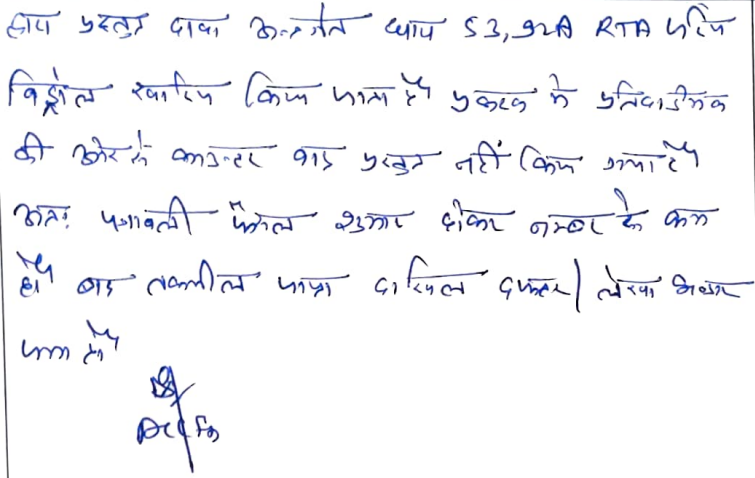 द्वारा प्रस्तुत दावा अन्तर्गत धारा 53, 92A RTA
विड्रोल खारिज किया जाता है प्रकरण में प्रतिवादीगण
की ओर से काउन्टर वाद प्रस्तुत नहीं किया गया है
अतः पत्रावली फैसल शुमार होकर नम्बर से कम
हो बाद तकमील पत्रा दाखिल दफ्तर